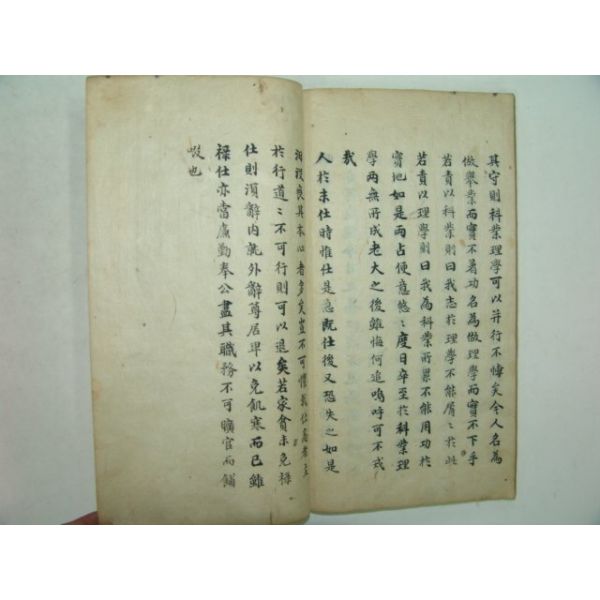 其守則科業理學可以并行不悖矣今人名為
做舉業而實不著功名為做理學而實不下手
若責以科業則曰我志於理學不能屑〻於此
若責以理學則曰我為科業所累不能用功於
實地如是兩占便宜悠〻度日卒至於科業理
學兩無所成老大之後雖悔何追嗚呼可不戒
哉
人於未仕時惟仕是急旣仕後又恐失之如是
汩沒喪其本心者多矣豈不可懼哉仕高者主
於行道〻不可行則可以退矣若家貧未免祿
仕則須辭內就外辭尊居卑以免飢寒而已雖
祿仕亦當廉勤奉公盡其職務不可曠官而餔
啜也